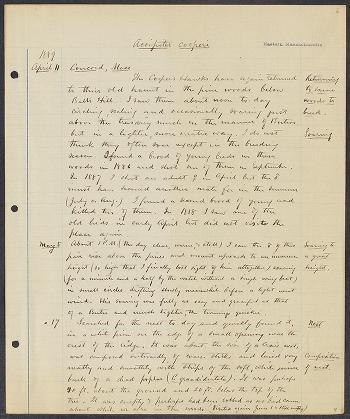 Accipiter cooperi
Eastern Massachusetts.
1889
April 11 Concord, Mass.
The Cooper's Hawks have again returned
Returning
to their old haunt in the pine woods below
to same
Ball's Hill. I saw them about noon to-day
woods to
circling, sailing and occasionally soaring just
breed.
above the treetops much in the manner of Buteos
but in a lighter, more erratic way. I do not
Soaring
think they often soar except in the breeding
season. I found a brood of young birds in these
woods in 1886 and shot one of them in September.
In 1887 I shot an adult ♀ in April but the ♂
must have secured another mate for in the summer
(July or Aug.) I found a second brood of young and
killed two of them. In 1888 I saw one of the
old birds in early April but did not visit the
place again.
May 8 About 1 P.M. (the day clear, warm, & still) I saw the ♂ of this
Soaring to
pair rise above the pines and mount upwards to an immense
a great
height (so high that I finally lost sight of him altogether) soaring
height.
(for a minute and a half by the watch without a single wing beat)
in small circles drifting slowly meanwhile before a light west
wind. His soaring was fully as easy and graceful as that
of a Buteo and much lighter, the turnings quicker.
" 17 Searched for the nest to-day and quickly found it,
Nest
in a white pine on the edge of a small opening near the
crest of the ridge. It was about the size of a Crow's nest,
was composed outwardly of coarse sticks, and lined very
Composition
neatly and smoothly with strips of the soft
of nest.
bark of a dead poplar (P. grandidentata). It was perhaps
ft. above the ground and ft. below the top of the
tree. It was empty & perhaps had been robbed as we had come
about